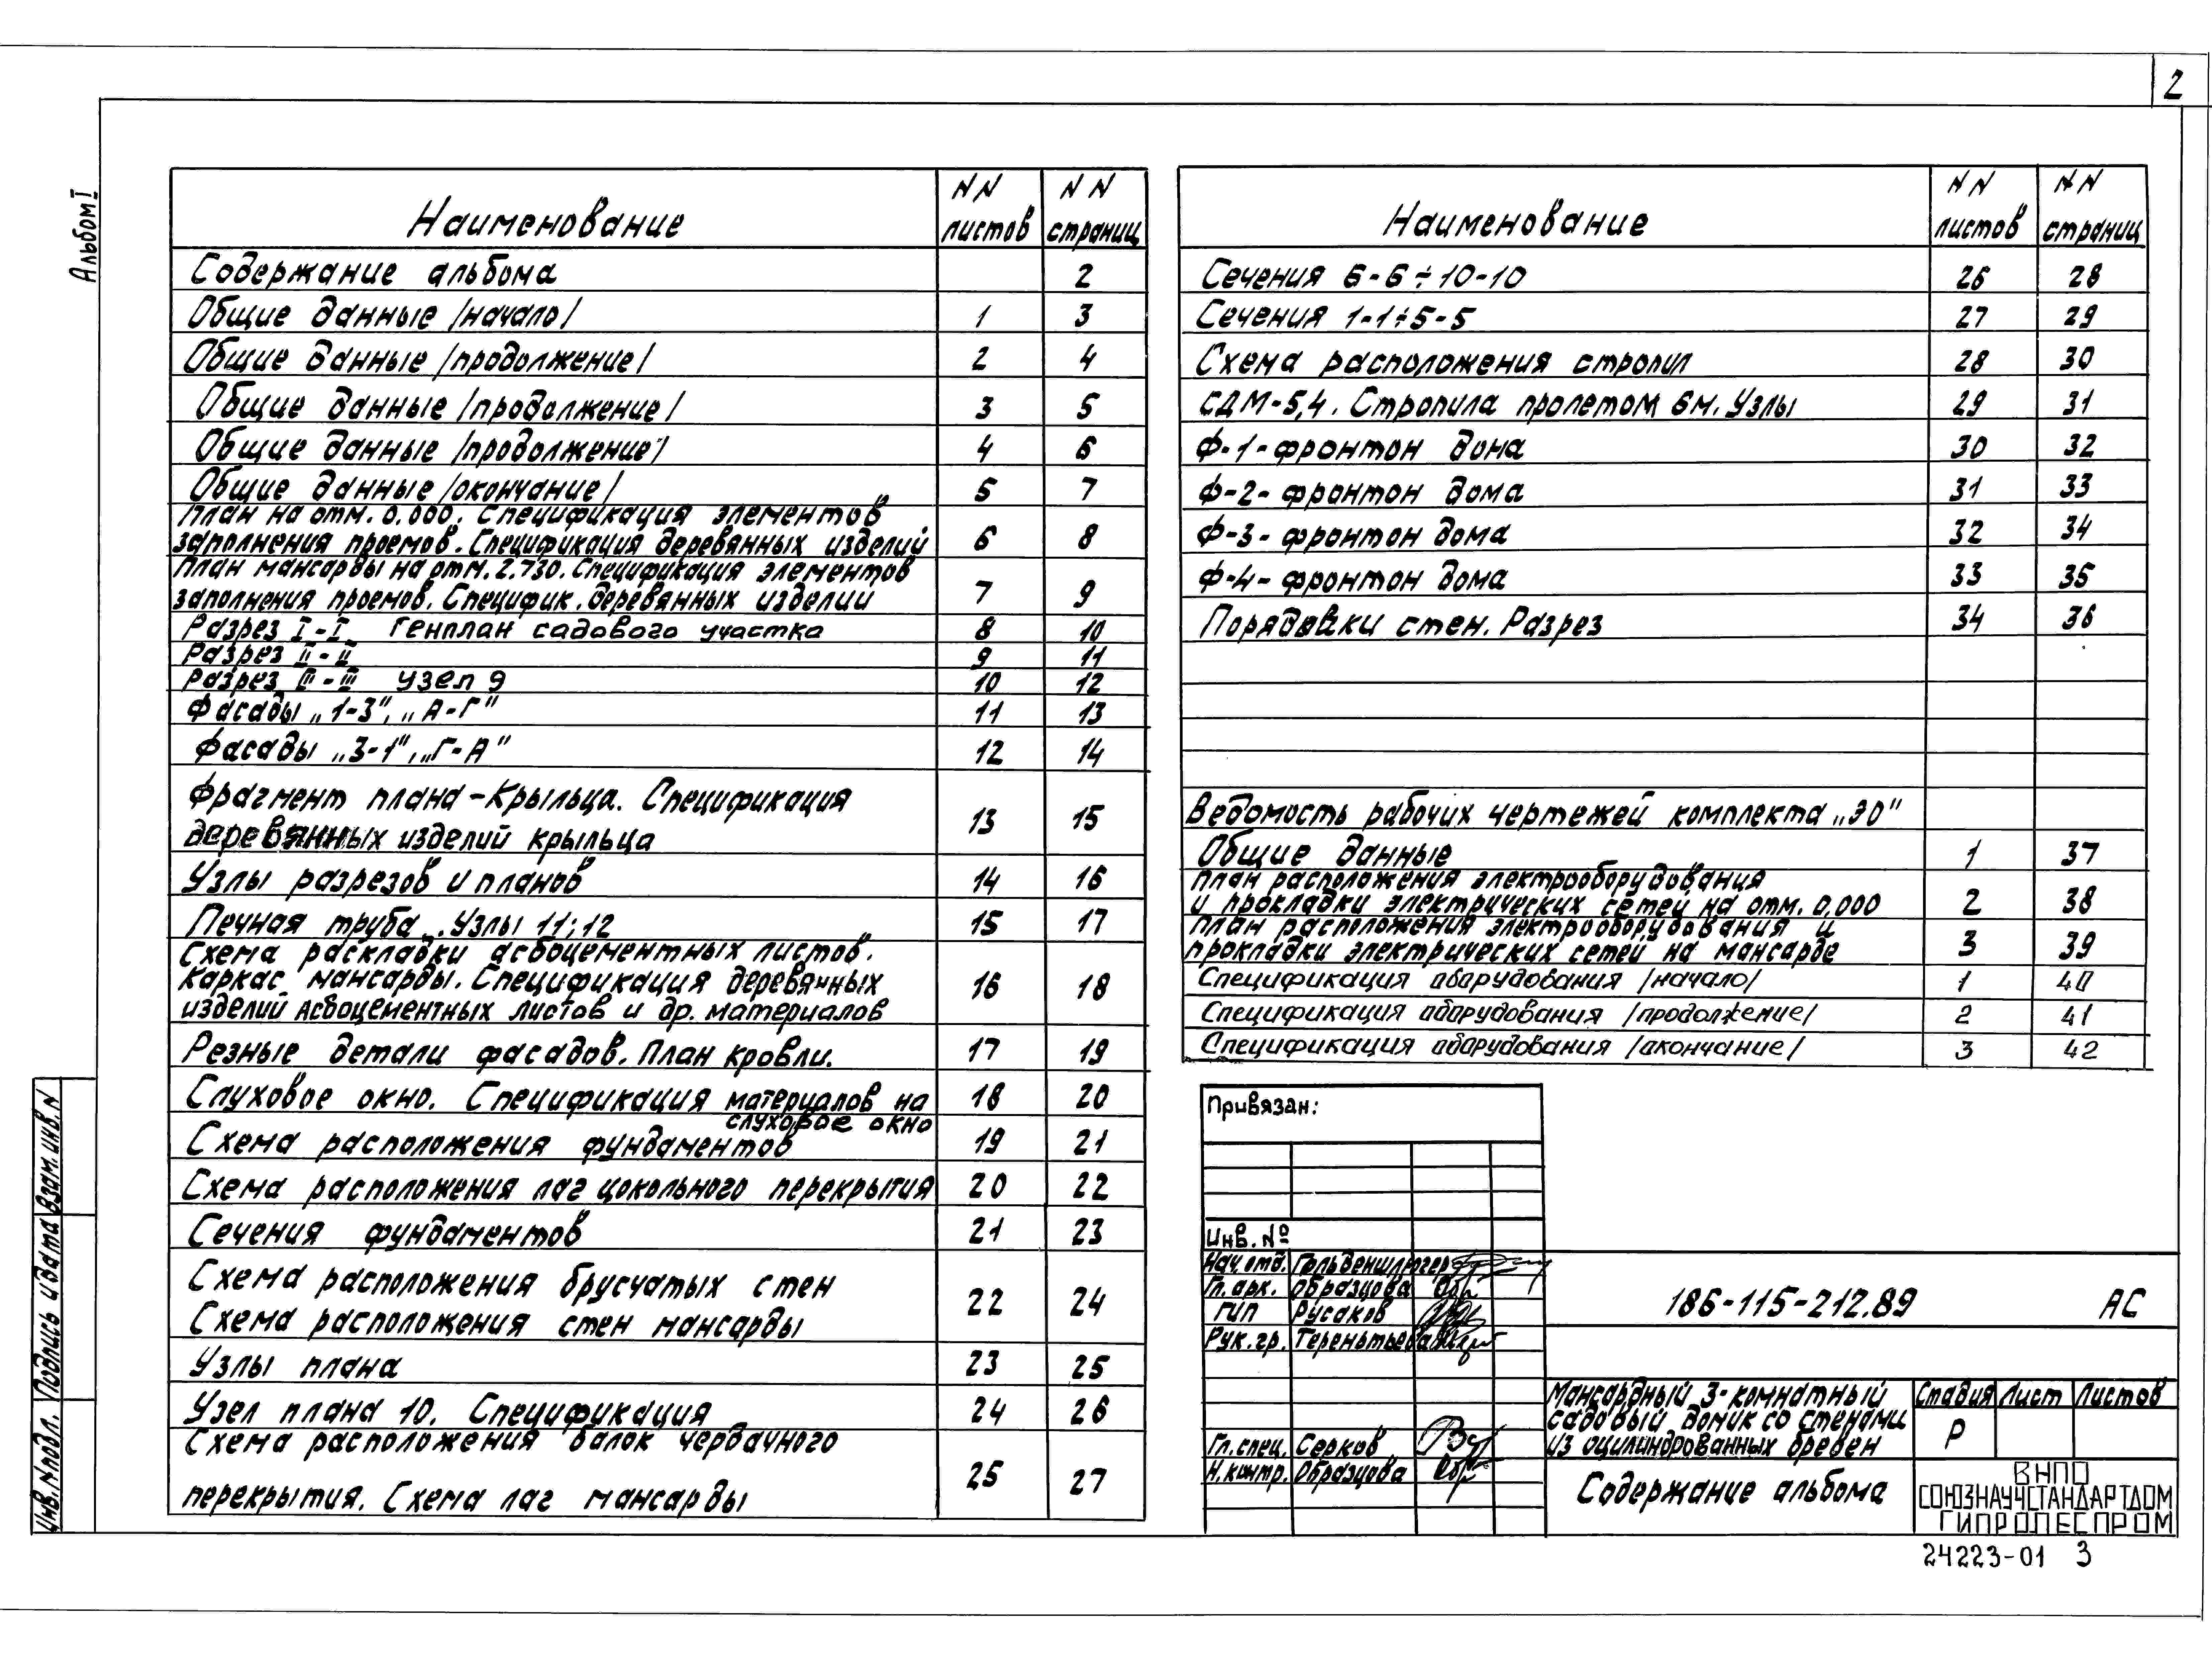 2
Альбом I
Наименование NN листов NN страниц
Содержание альбома 2
Общие данные /начало/ 1 3
Общие данные /продолжение/ 2 4
Общие данные /продолжение/ 3 5
Общие данные /продолжение/ 4 6
Общие данные /окончание/ 5 7
План на отм. 0.000. Спецификация элементов
заполнения проемов. Спецификация деревянных изделий 6 8
План мансарды на отм. 2.730. Спецификация элементов
заполнения проемов. Специфик. деревянных изделий 7 9
Разрез I-I Генплан садового участка 8 10
Разрез II-II 9 11
Разрез III-III узел 9 10 12
Фасады „1-3", „А-Г" 11 13
Фасады „3-1", „Г-А" 12 14
Фрагмент плана-Крыльца. Спецификация
деревянных изделий крыльца 13 15
Узлы разрезов и планов 14 16
Печная труба. Узлы 11; 12 15 17
Схема раскладки асбоцементных листов.
Каркас мансарды. Спецификация деревянных
изделий асбоцементных листов и др. материалов 16 18
Резные детали фасадов. План кровли. 17 19
Слуховое окно. Спецификация материалов на
слуховое окно 18 20
Схема расположения фундаментов 19 21
Схема расположения лаг цокольного перекрытия 20 22
Сечения фундаментов 21 23
Схема расположения брусчатых стен
Схема расположения стен мансарды 22 24
Узлы плана 23 25
Узел плана 10. Спецификация 24 26
Схема расположения балок чердачного
перекрытия. Схема лаг мансарды 25 27
Наименование NN листов NN страниц
Сечения 6-6÷10-10 26 28
Сечения 1-1÷5-5 27 29
Схема расположения стропил 28 30
СДМ-5,4. Стропила пролетом 6м. Узлы 29 31
Ф-1-фронтон дома 30 32
Ф-2-фронтон дома 31 33
Ф-3-фронтон дома 32 34
Ф-4-фронтон дома 33 35
Порядовки стен. Разрез 34 36
Ведомость рабочих чертежей комплекта „ЭО"
Общие данные 1 37
План расположения электрооборудования
и прокладки электрических сетей на отм. 0,000 2 38
План расположения электрооборудования и
прокладки электрических сетей на мансарде 3 39
Спецификация оборудования /начало/ 1 40
Спецификация оборудования /продолжение/ 2 41
Спецификация оборудования /окончание/ 3 42
Привязан:
Инв. №
Нач. отд.
Гл. арк. Образцова
ГИП Русаков
Рук. гр. Терентьева
Гл. спец. Серков
Н. контр. Образцова
186-115-212.89 АС
Мансардный 3-комнатный
садовый домик со стенами
из оцилиндрованных бревен
Стадия Лист Листов
Р
Содержание альбома
ВНПО
СОЮЗНАУЧСТАНДАРТДОМ
ГИПРОЛЕСПРОМ
24223-01 3
Инв. N подл. Подпись и дата Взам. инв. N